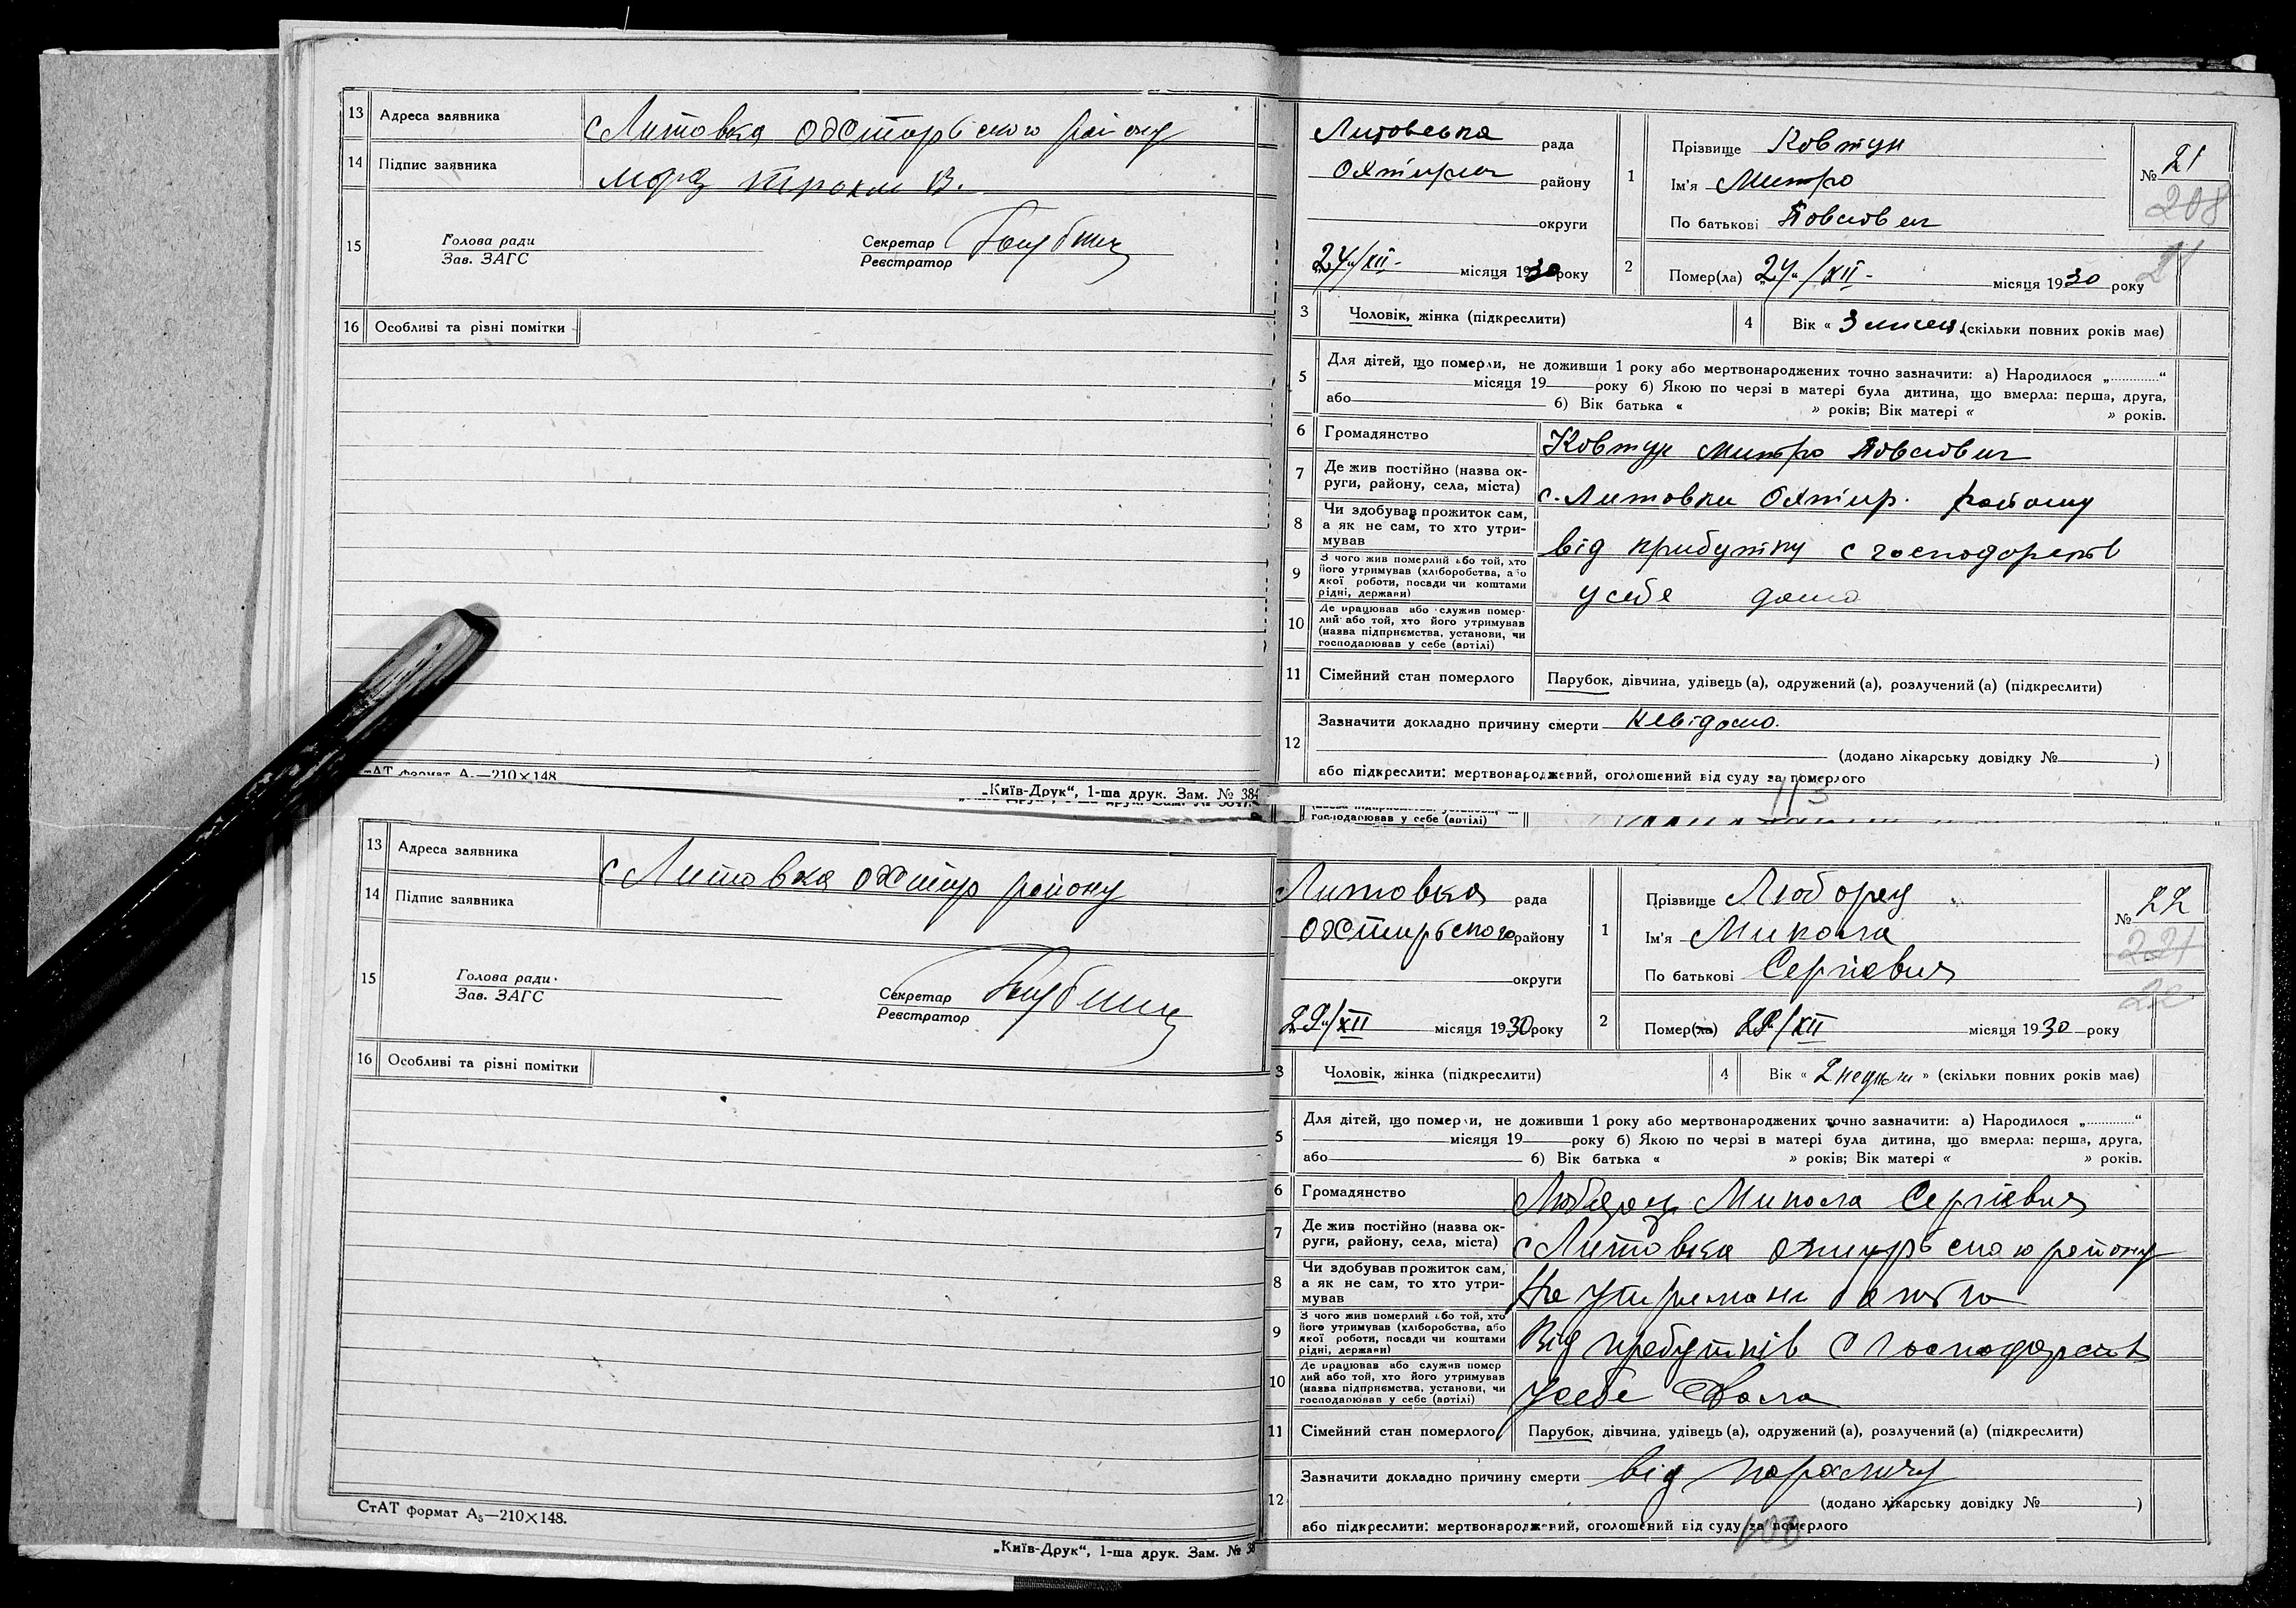 13 Адреса заявника с Литовка Охтирського району
14 Підпис заявника Мороз Трохим В.
15 Голова ради
Зав. ЗАГС
Секретар
Реєстратор
16 Особливі та різні помітки
СтАТ формат А₅—210×148
„Київ-Друк“, 1-ша друк. Зам. № 384
Литовська рада
Охтирсь району
округи
„24“/XII- місяця 1930 року
1 Прізвище Ковтун
Ім'я Митро
По батькові Повлович
№ 21
208
21
2 Помер(ла) „24“/XII- місяця 1930 року
3 Чоловік, жінка (підкреслити)
4 Вік « 3 місец. (скільки повних років має)
5 Для дітей, що померли, не доживши 1 року або мертвонароджених точно зазначити: а) Народилося „............“
місяця 19 року б) Якою по черзі в матері була дитина, що вмерла: перша, друга,
або б) Вік батька « » років; Вік матері « » років.
6 Громадянство Ковтун Митро Повлович
7 Де жив постійно (назва округи, району, села, міста) с. Литовки Охтир. району
8 Чи здобував прожиток сам,
а як не сам, то хто утримував від прибутку с господарств
9 З чого жив померлий або той, хто
його утримував (хліборобства, або
якої роботи, посади чи коштами
рідні, держави) усебе дома
10 Де працював або служив померлий або той, хто його утримував
(назва підприємства, установи, чи
господарював у себе (артілі)
11 Сімейний стан померлого Парубок, дівчина, удівець (а), одружений (а), розлучений (а) (підкреслити)
12 Зазначити докладно причину смерти Невідомо.
(додано лікарську довідку № )
або підкреслити: мертвонароджений, оголошений від суду за померлого
113
господарював у себе (артілі)
13 Адреса заявника с Литовка Охтир району
14 Підпис заявника
15 Голова ради
Зав. ЗАГС
Секретар
Реєстратор
16 Особливі та різні помітки
СтАТ формат А₅—210×148.
„Київ-Друк“, 1-ша друк. Зам. № 38
Литовка рада
Охтирьского району
округи
„29“/XII місяця 1930 року
1 Прізвище Люборец
Ім'я Микола
По батькові Сергіевич
№ 22
221
22
2 Помер(ла) 29/XII місяця 1930 року
3 Чоловік, жінка (підкреслити)
4 Вік « 2 недели » (скільки повних років має)
5 Для дітей, що померли, не доживши 1 року або мертвонароджених точно зазначити: а) Народилося „............“
місяця 19 року б) Якою по черзі в матері була дитина, що вмерла: перша, друга,
або б) Вік батька « » років; Вік матері « » років.
6 Громадянство Микола Сергіевич
7 Де жив постійно (назва округи, району, села, міста) с Литовка району
8 Чи здобував прожиток сам,
а як не сам, то хто утримував На утримани батька
9 З чого жив померлий або той, хто
його утримував (хліборобства, або
якої роботи, посади чи коштами
рідні, держави) Від пребутків с господарств
10 Де працював або служив померлий або той, хто його утримував
(назва підприємства, установи, чи
господарював у себе (артілі) Усебе Дома
11 Сімейний стан померлого Парубок, дівчина, удівець (а), одружений (а), розлучений (а) (підкреслити)
12 Зазначити докладно причину смерти від паралічу
(додано лікарську довідку № )
або підкреслити: мертвонароджений, оголошений від суду за померлого
100